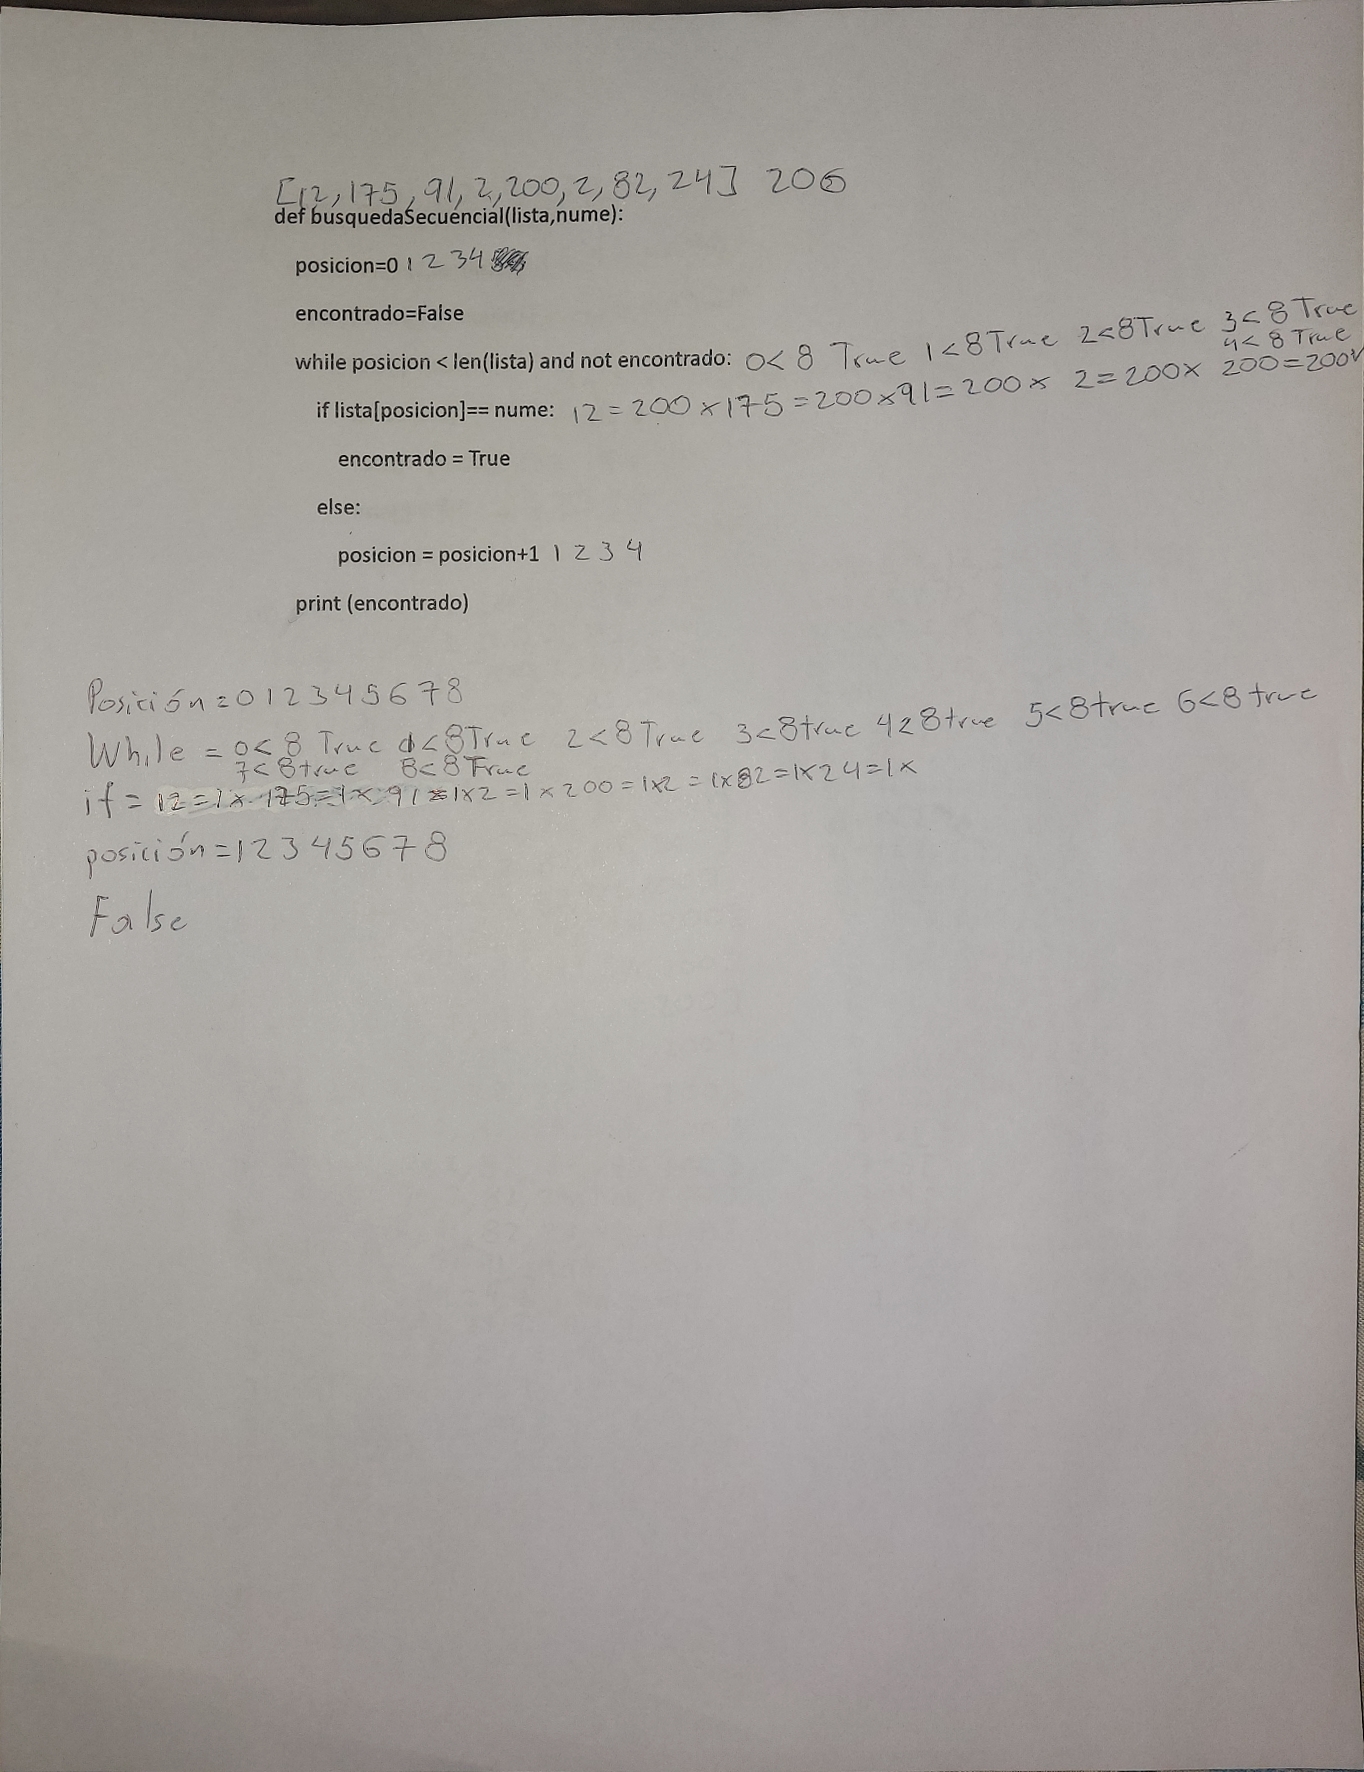 [12,175,91,2,200,2,82,24] 200
def busquedaSecuencial(lista,nume):
posicion=0 1 2 3 4
encontrado=False
while posicion < len(lista) and not encontrado: 0<8 True 1<8 True 2<8 True 3<8 True
4<8 True
if lista[posicion]== nume: 12=200 x 175=200 x 91=200 x 2=200 x 200=200✓
encontrado = True
else:
posicion = posicion+1 1 2 3 4
print (encontrado)
Posición=0 1 2 3 4 5 6 7 8
While = 0<8 True 1<8 True 2<8 True 3<8 true 4<8 true 5<8 true 6<8 true
7<8 true 8<8 True
if = 12=1x 175=1x 91=1x 2=1x 200=1x 2=1x 82=1x 24=1x
posición=1 2 3 4 5 6 7 8
False